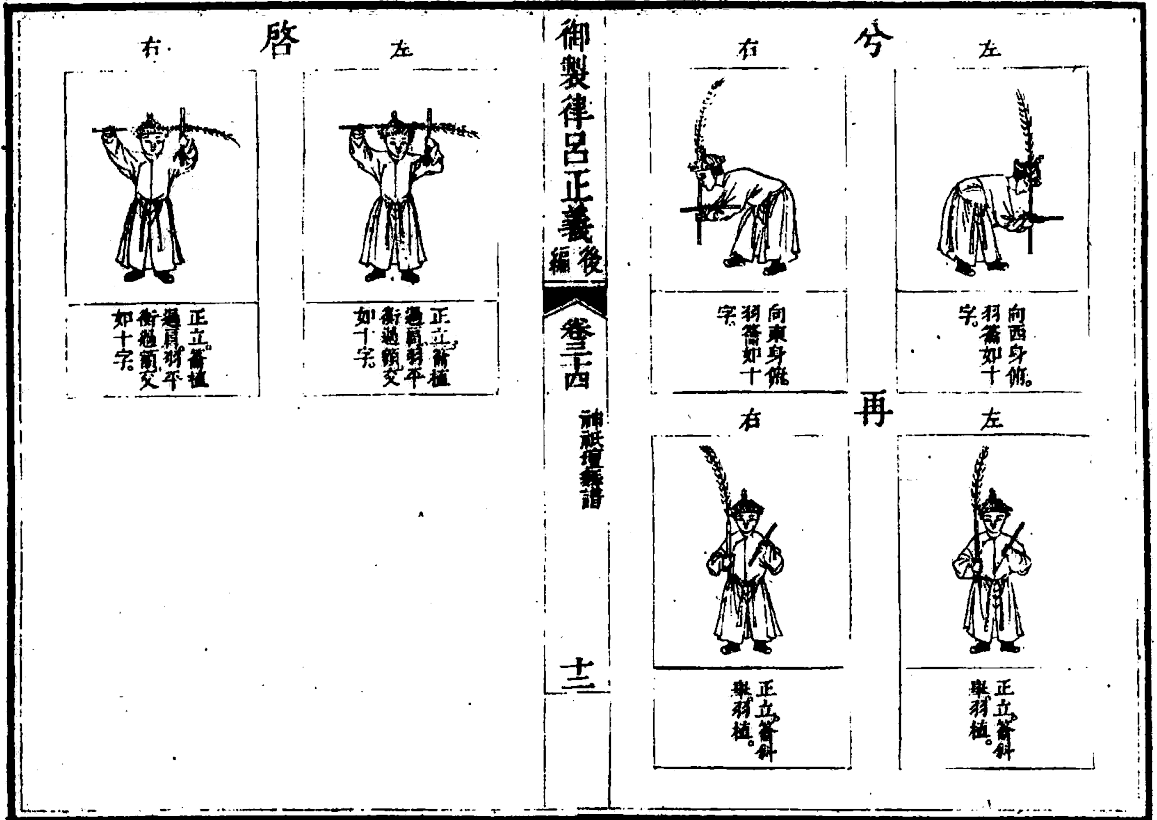 兮
左
向西身俯。
羽籥如十
字。
右
向東身俯。
羽籥如十
字。
再
左
正立。籥斜
舉。羽植。
右
正立。籥斜
舉。羽植。
御製律呂正義後編
卷三十四
神祇壇舞譜
十二
啓
左
正立。籥植
過肩。羽平
衡過額。交
如十字。
右
正立。籥植
過肩。羽平
衡過額。交
如十字。